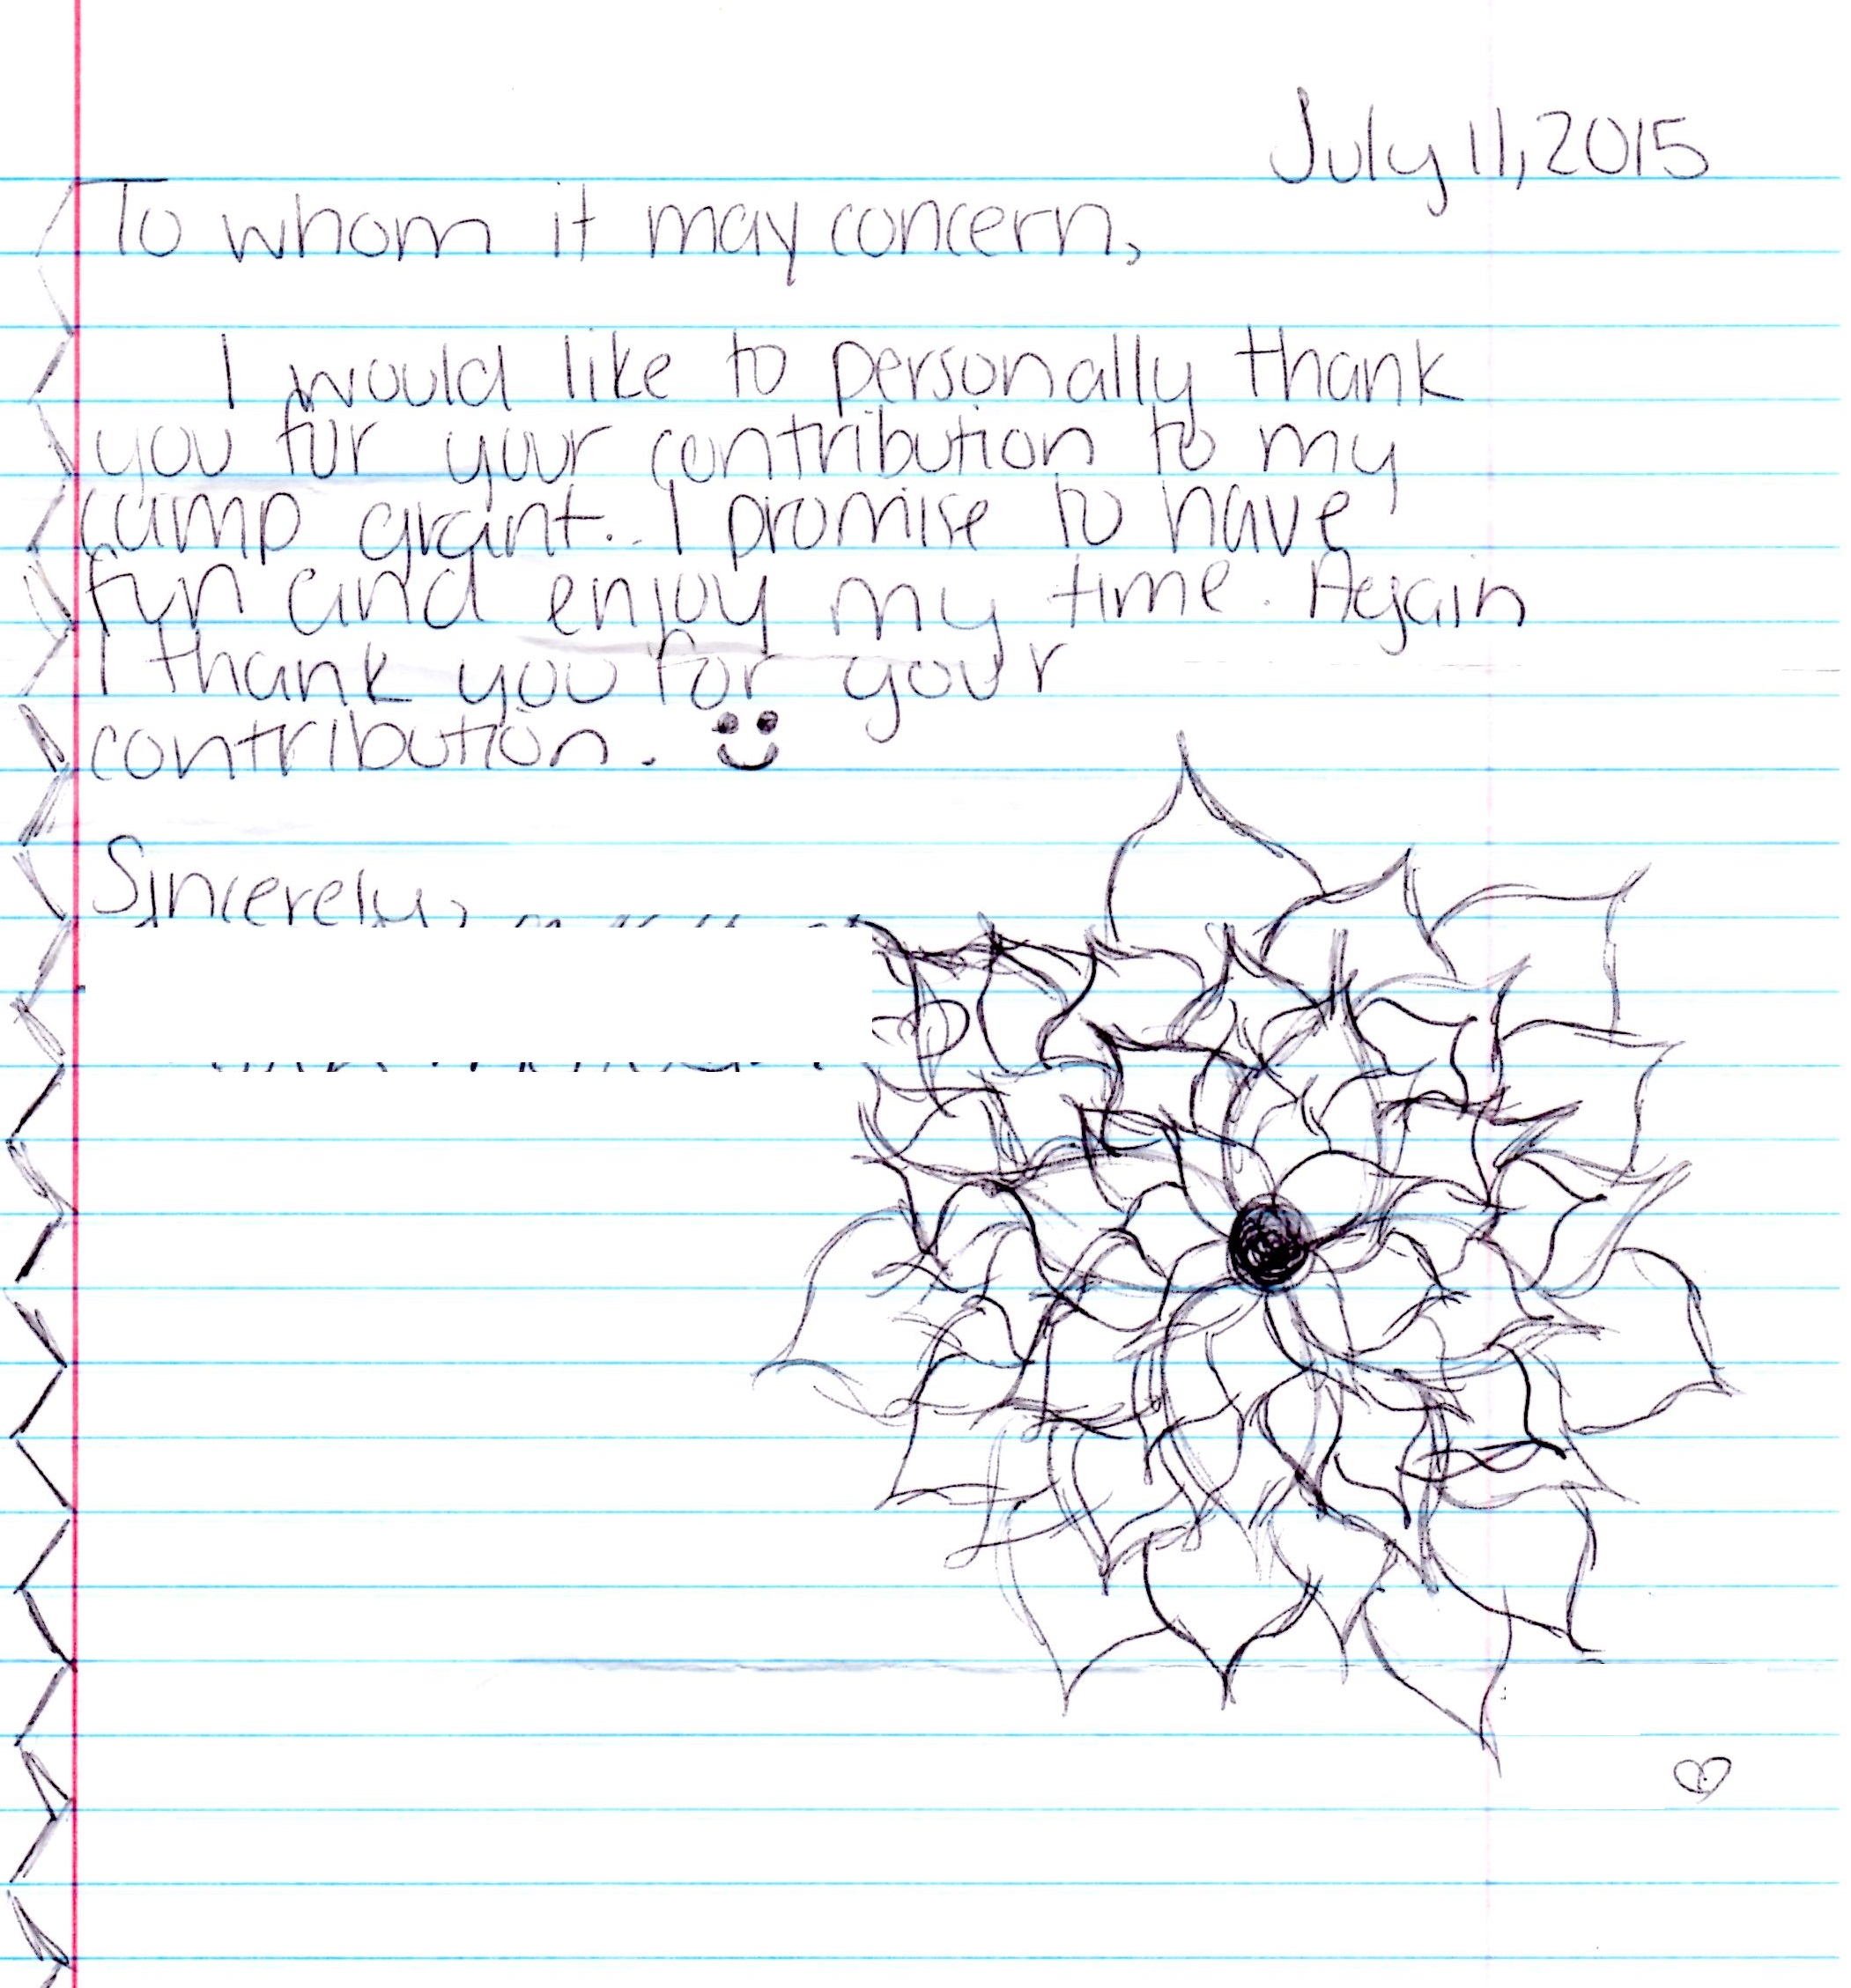 July 11, 2015
To whom it may concern,
I would like to personally thank
you for your contribution to my
camp grant. I promise to have
fun and enjoy my time. Again
I thank you for your
contribution.
Sincerely,